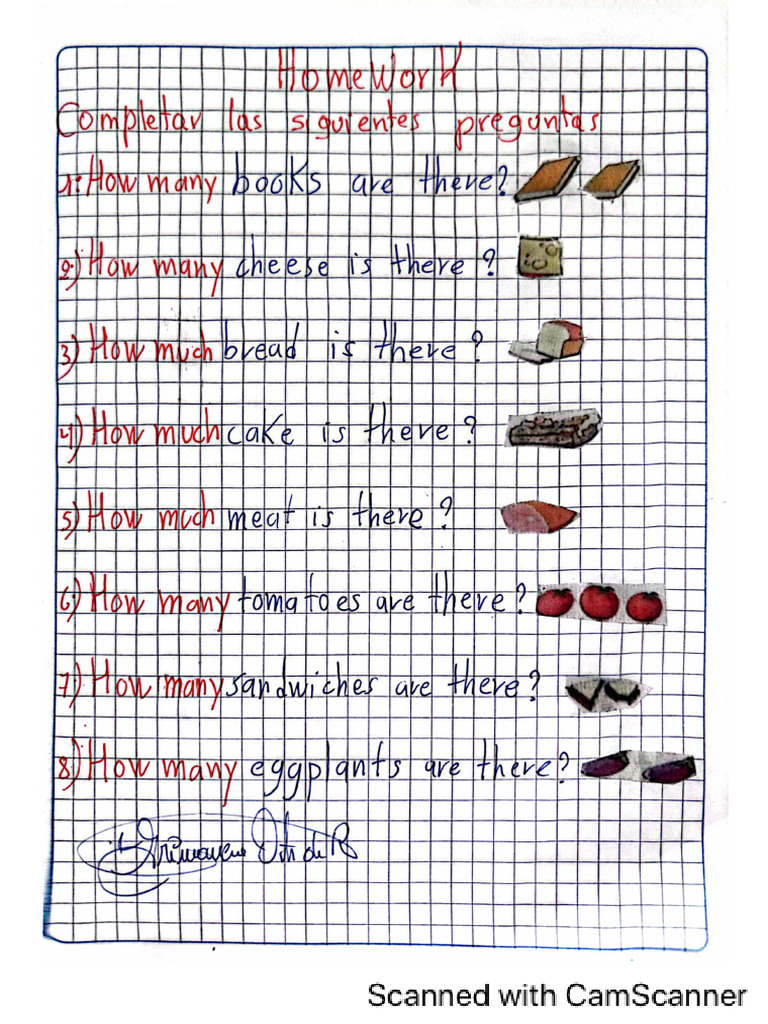 HomeWork
Completar las siguientes preguntas
1: How many books are there?
2) How many cheese is there?
3) How much bread is there?
4) How much cake is there?
5) How much meat is there?
6) How many tomatoes are there?
7) How many sandwiches are there?
8) How many eggplants are there?
Scanned with CamScanner